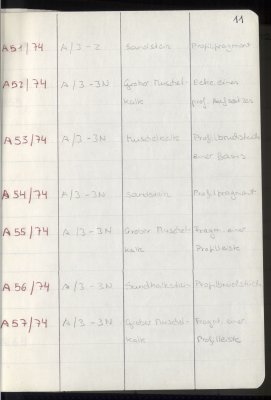 11
A51/74 A/3-2 Sandstein Profilfragment
A52/74 A/3-3N Grober Muschel- Ecke eines
kalk prof. Aufsatzes
A53/74 A/3-3N Muschelkalk Profilbruchstück
einer Basis
A54/74 A/3-3N Sandstein Profilfragment
A55/74 A/3-3N Grober Muschel- Fragm. einer
kalk Profilleiste
A56/74 A/3-3N Sandkalkstein Profilbruchstück
A57/74 A/3-3N Grober Muschel- Fragm. einer
kalk Profilleiste